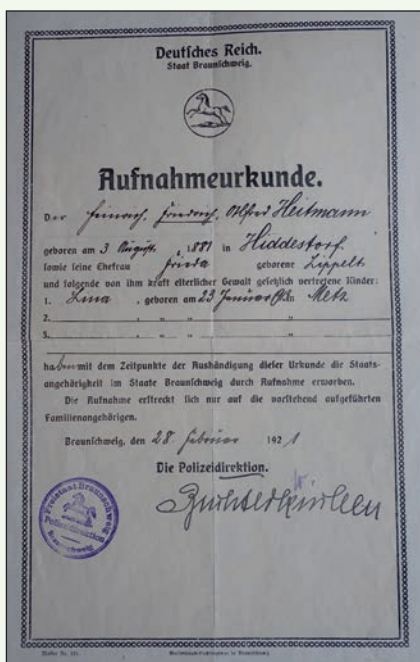 Deutsches Reich.
Staat Braunschweig.
Aufnahmeurkunde.
Der Heinrich, Friedrich, Alfred Heitmann
geboren am 3 August 1881 in Hiddestorf
sowie seine Ehefrau Frieda geborene Lippelt
und folgende von ihm kraft elterlicher Gewalt gesetzlich vertretene Kinder:
1. Lina, geboren am 23 Januar in Metz
2. " " "
3. " " "
haben mit dem Zeitpunkte der Aushändigung dieser Urkunde die Staats-
angehörigkeit im Staate Braunschweig durch Aufnahme erworben.
Die Aufnahme erstreckt sich nur auf die vorstehend aufgeführten
Familienangehörigen.
Braunschweig, den 28 Februar 1921
Die Polizeidirektion.
Freistaat Braunschweig
Polizeidirektion
Braunschweig